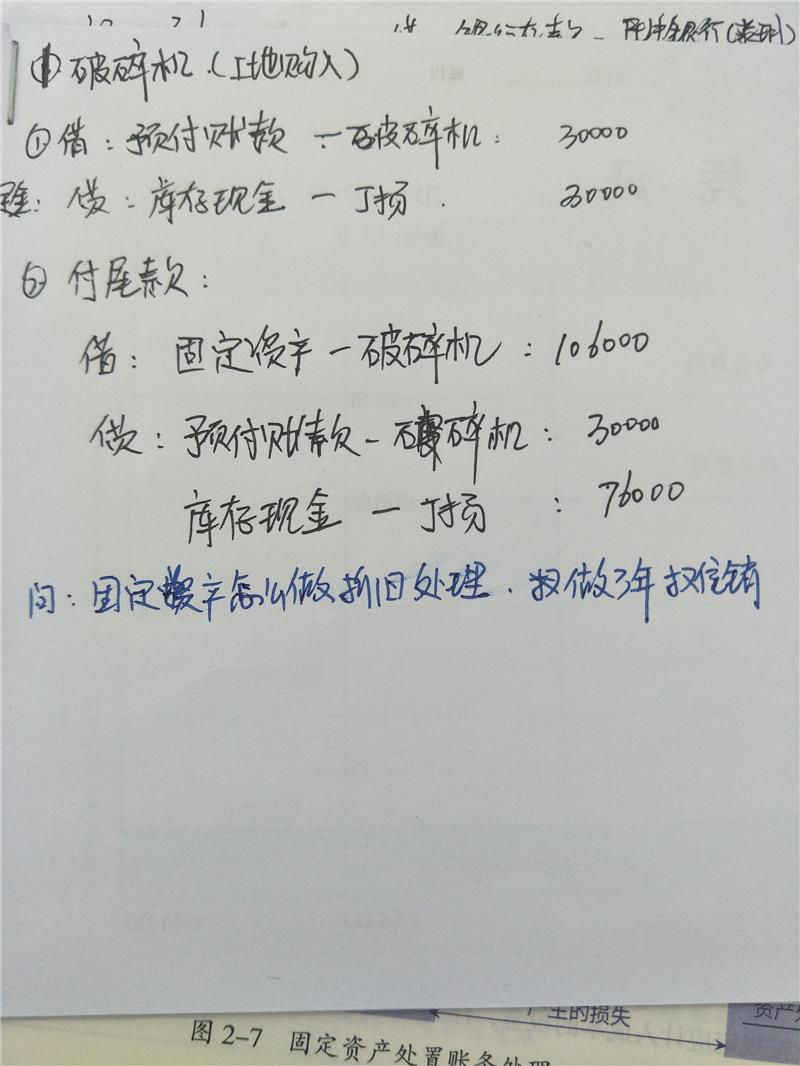 银行存款 - 阿拉尔银行(
破碎机(工地购入)
①借:预付账款 - 破碎机: 30000
贷:库存现金 — 丁扬 30000
② 付尾款:
借: 固定资产 - 破碎机 : 106000
贷:预付账款 - 破碎机: 30000
库存现金 — 丁扬 : 76000
问:固定资产怎么做折旧处理. 我做3年
产生的损失
资产处
图 2-7 固定资产处置账务处理